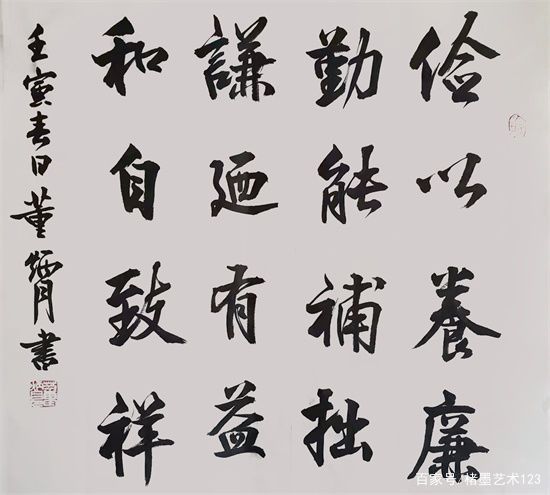 俭以養廉
勤能補拙
謙廼有益
和自致祥
壬寅春日董書
百家号/楮墨艺术123